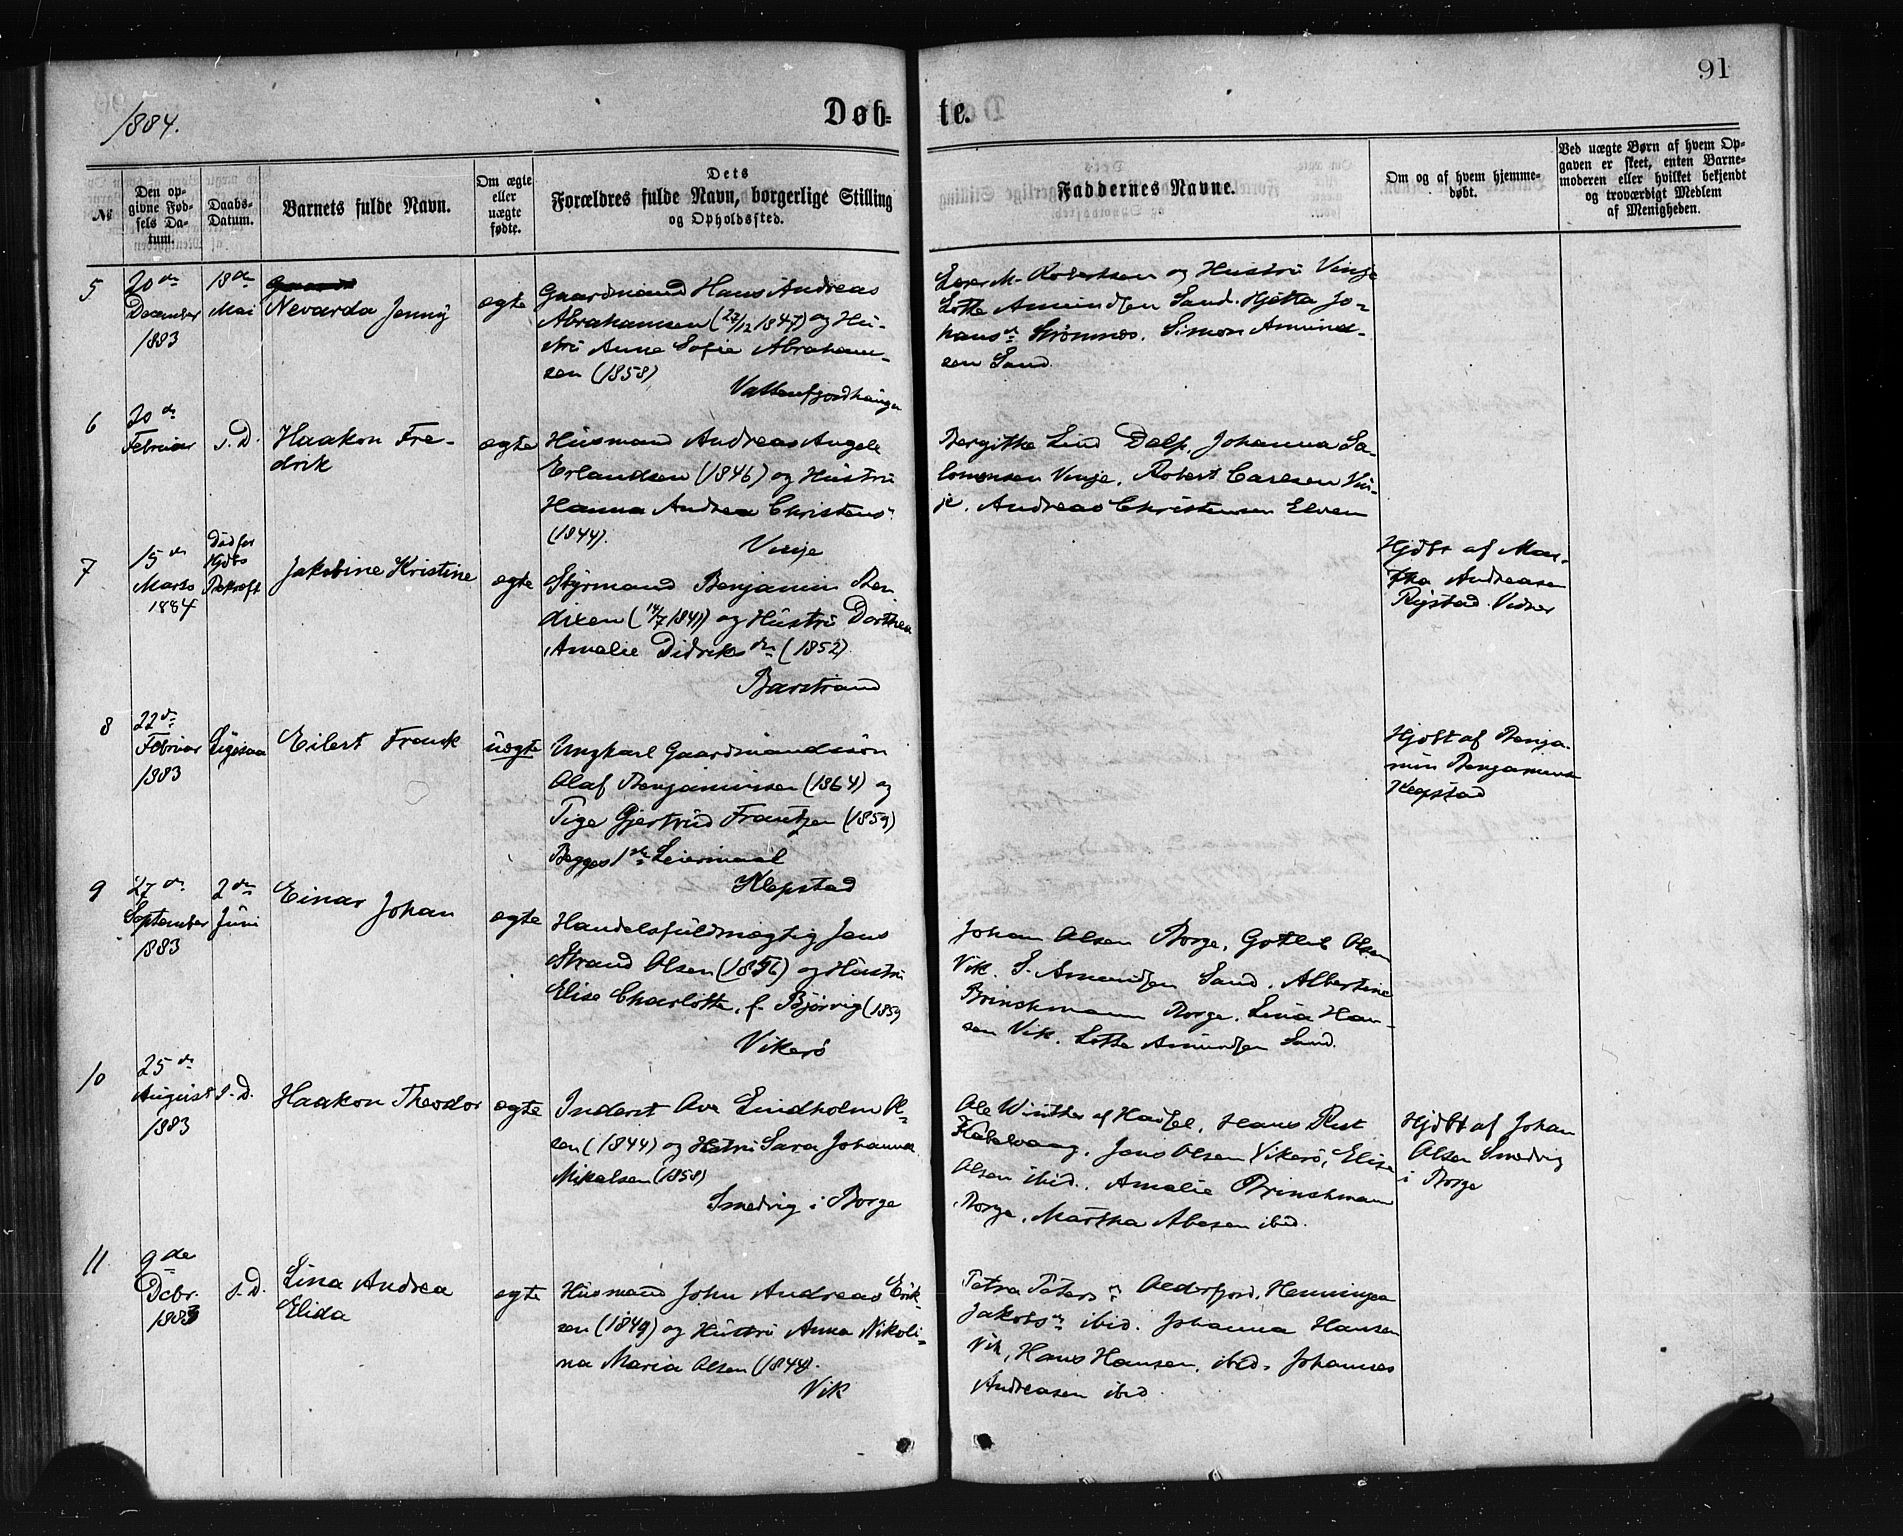 91
1884.
Døb-
te.
№
Den op-
givne Fød-
sels Da-
tum.
Daabs-
Datum.
Barnets fulde Navn.
Om ægte
eller
uægte
fødte.
Dets
Forældres fulde Navn, borgerlige Stilling
og Opholdssted.
Faddernes Navne.
Om og af hvem hjemme-
døbt.
Ved uægte Børn af hvem Op-
gaven er skeet, enten Barne-
moderen eller hvilket bekjendt
og troværdigt Medlem
af Menigheden.
5
20de
December
1883
18de
Mai
Nevarda Jenny
ægte
Gaardmand Hans Andreas
Abrahamsen (27/12 1847) og Hu-
stru Anne Sofie Abraham-
sen (1858)
Robertsen og Hustru Vinje
Lotte Amundsen Sand. Hjetta Jo-
hansd. Strømnes. Simon Amund-
sen Sand.
6
20de
Februar
s. D.
Haakon Fre-
drik
ægte
Husmand Andreas Angell
Erlandsen (1846) og Hustru
Hanna Andrea Christens
(1844).
Vinje
Bergitte Lind Dalp, Johanna Sa-
lomonsen Vinje, Robert Carlsen Vin-
je. Andreas Christensen Elven
7
15de
Marts
1884
Død før
Hjdbs
Bekræft
Jakobine Kristine
ægte
Styrmand Benjamin Ben-
dixen (14/7 1841) og Hustru Dorthea
Amalie Didriksdn (1852)
Barstrand
Hjdbt af Mar-
tha Andreasen
Rystad. Vidner
8
22de
Februar
1883
Ligesaa
Eilert Frank
uægte
Ungkarl Gaardmandssøn
Olaf Benjaminsen (1864) og
Pige Gjertrud Frantzen (1859)
Begges 1ste Leiermaal
Klepstad
Hjdbt af Benja-
min Benjaminsen
Klepstad
9
27de
September
1883
2den
Juni
Einar Johan
ægte
Handelsfuldmægtig Jens
Strand Olsen (1856) og Hustru
Elise Charlotte, f. Bjørvig (1859
Vikerø
Johan Olsen Borge, Gotlib Olsen
Vik. S. Amundsen Sand. Albertine
Brinchmann Borge. Lina Han-
sen Vik. Lotte Amundsen Sand.
10
25de
August
1883
s. D.
Haakon Theodor
ægte
Inderst Ove Lindholm Ol-
sen (1844) og Hustru Sara Johanna
Mikalsen (1858)
Smedvig i Borge
Ole Winther af Hadsel, Hans Rist
Kabelvaag, Jens Olsen Vikerø, Elise
Olsen ibid., Amalie Brinchmann
Borge, Martha Abesen ibid.
Hjdbt af Johan
Olsen Smedvig
i Borge
11
9de
Decbr.
1883
s. D.
Lina Andrea
Elida
ægte
Husmand John Andreas Erik-
sen (1849) og Hustru Anna Nikoli-
na Maria Olsen (1844).
Vik
Petra Petersn Alderfjord, Henningea
Jakobsn ibid. Johanna Hansen
Vik, Hans Hansen, ibid, Johannes
Andreasen ibid.